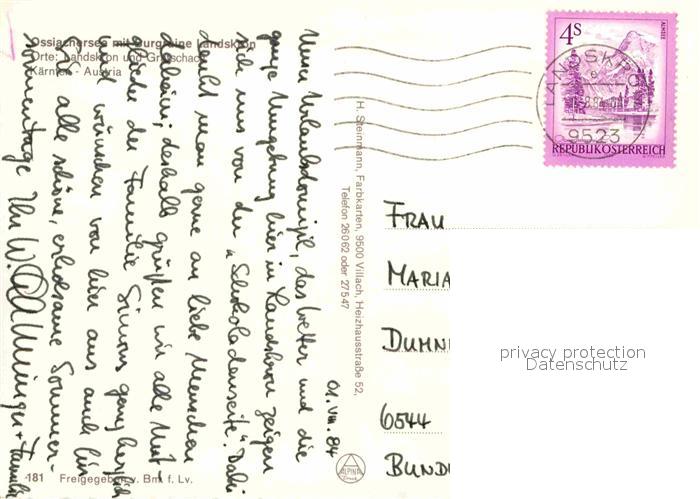 Ossiachersee mit Burgruine Landskron
Orte: Landskron und Gratschach
Kärnten - Austria
01.VIII.84
Unser Urlaubsdomizil, das Wetter und die
ganze Umgebung hier in Landskron zeigen
sich uns von der „Schokoladenseite". Dabei
denkt man gerne an liebe Menschen
daheim; deshalb grüßen wir alle Mit-
glieder der Familie Simons ganz herzlich
und wünschen von hier aus auch für
Sie alle schöne, erholsame Sommer-
sonnentage. Ihr W. + Familie
H. Steinmann, Farbkarten, 9500 Villach, Heizhausstraße 52,
Telefon 26062 oder 27547
ALPINA
Druck
181 Freigegeben v. Bm. f. Lv.
4S
ALMSEE
REPUBLIK ÖSTERREICH
LANDSKRON
9523
FRAU
MARIA
DUMN
6544
BUND
privacy protection
Datenschutz